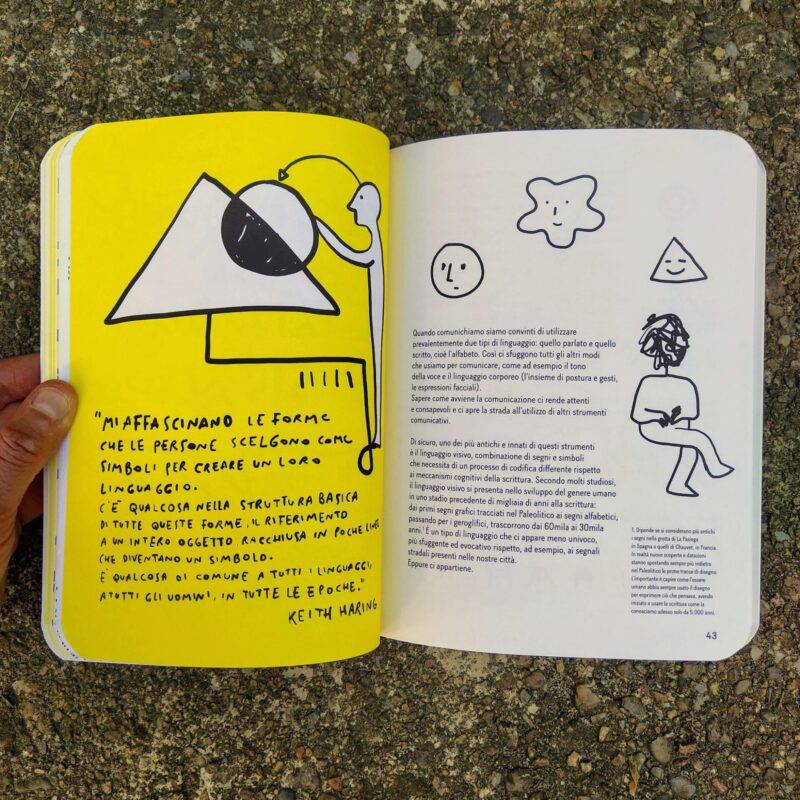 "MI AFFASCINANO LE FORME
CHE LE PERSONE SCELGONO COME
SIMBOLI PER CREARE UN LORO
LINGUAGGIO.
C'È QUALCOSA NELLA STRUTTURA BASICA
DI TUTTE QUESTE FORME, IL RIFERIMENTO
A UN INTERO OGGETTO RACCHIUSA IN POCHE LINEE
CHE DIVENTANO UN SIMBOLO.
È QUALCOSA DI COMUNE A TUTTI I LINGUAGGI,
A TUTTI GLI UOMINI, IN TUTTE LE EPOCHE."
KEITH HARING
Quando comunichiamo siamo convinti di utilizzare
prevalentemente due tipi di linguaggio: quello parlato e quello
scritto, cioè l'alfabeto. Così ci sfuggono tutti gli altri modi
che usiamo per comunicare, come ad esempio il tono
della voce e il linguaggio corporeo (l'insieme di postura e gesti,
le espressioni facciali).
Sapere come avviene la comunicazione ci rende attenti
e consapevoli e ci apre la strada all'utilizzo di altri strumenti
comunicativi.
Di sicuro, uno dei più antichi e innati di questi strumenti
è il linguaggio visivo, combinazione di segni e simboli
che necessita di un processo di codifica differente rispetto
ai meccanismi cognitivi della scrittura. Secondo molti studiosi,
il linguaggio visivo si presenta nello sviluppo del genere umano
in uno stadio precedente di migliaia di anni alla scrittura:
dai primi segni grafici tracciati nel Paleolitico ai segni alfabetici,
passando per i geroglifici, trascorrono dai 60mila ai 30mila
anni.¹ È un tipo di linguaggio che ci appare meno univoco,
più sfuggente ed evocativo rispetto, ad esempio, ai segnali
stradali presenti nelle nostre città.
Eppure ci appartiene.
1. Dipende se si considerano più antichi
i segni nella grotta di La Pasiega
in Spagna o quelli di Chauvet, in Francia.
In realtà nuove scoperte e datazioni
stanno spostando sempre più indietro
nel Paleolitico le prime tracce di disegno.
L'importante è capire come l'essere
umano abbia sempre usato il disegno
per esprimere ciò che pensava, avendo
iniziato a usare la scrittura come la
conosciamo adesso solo da 5.000 anni.
43